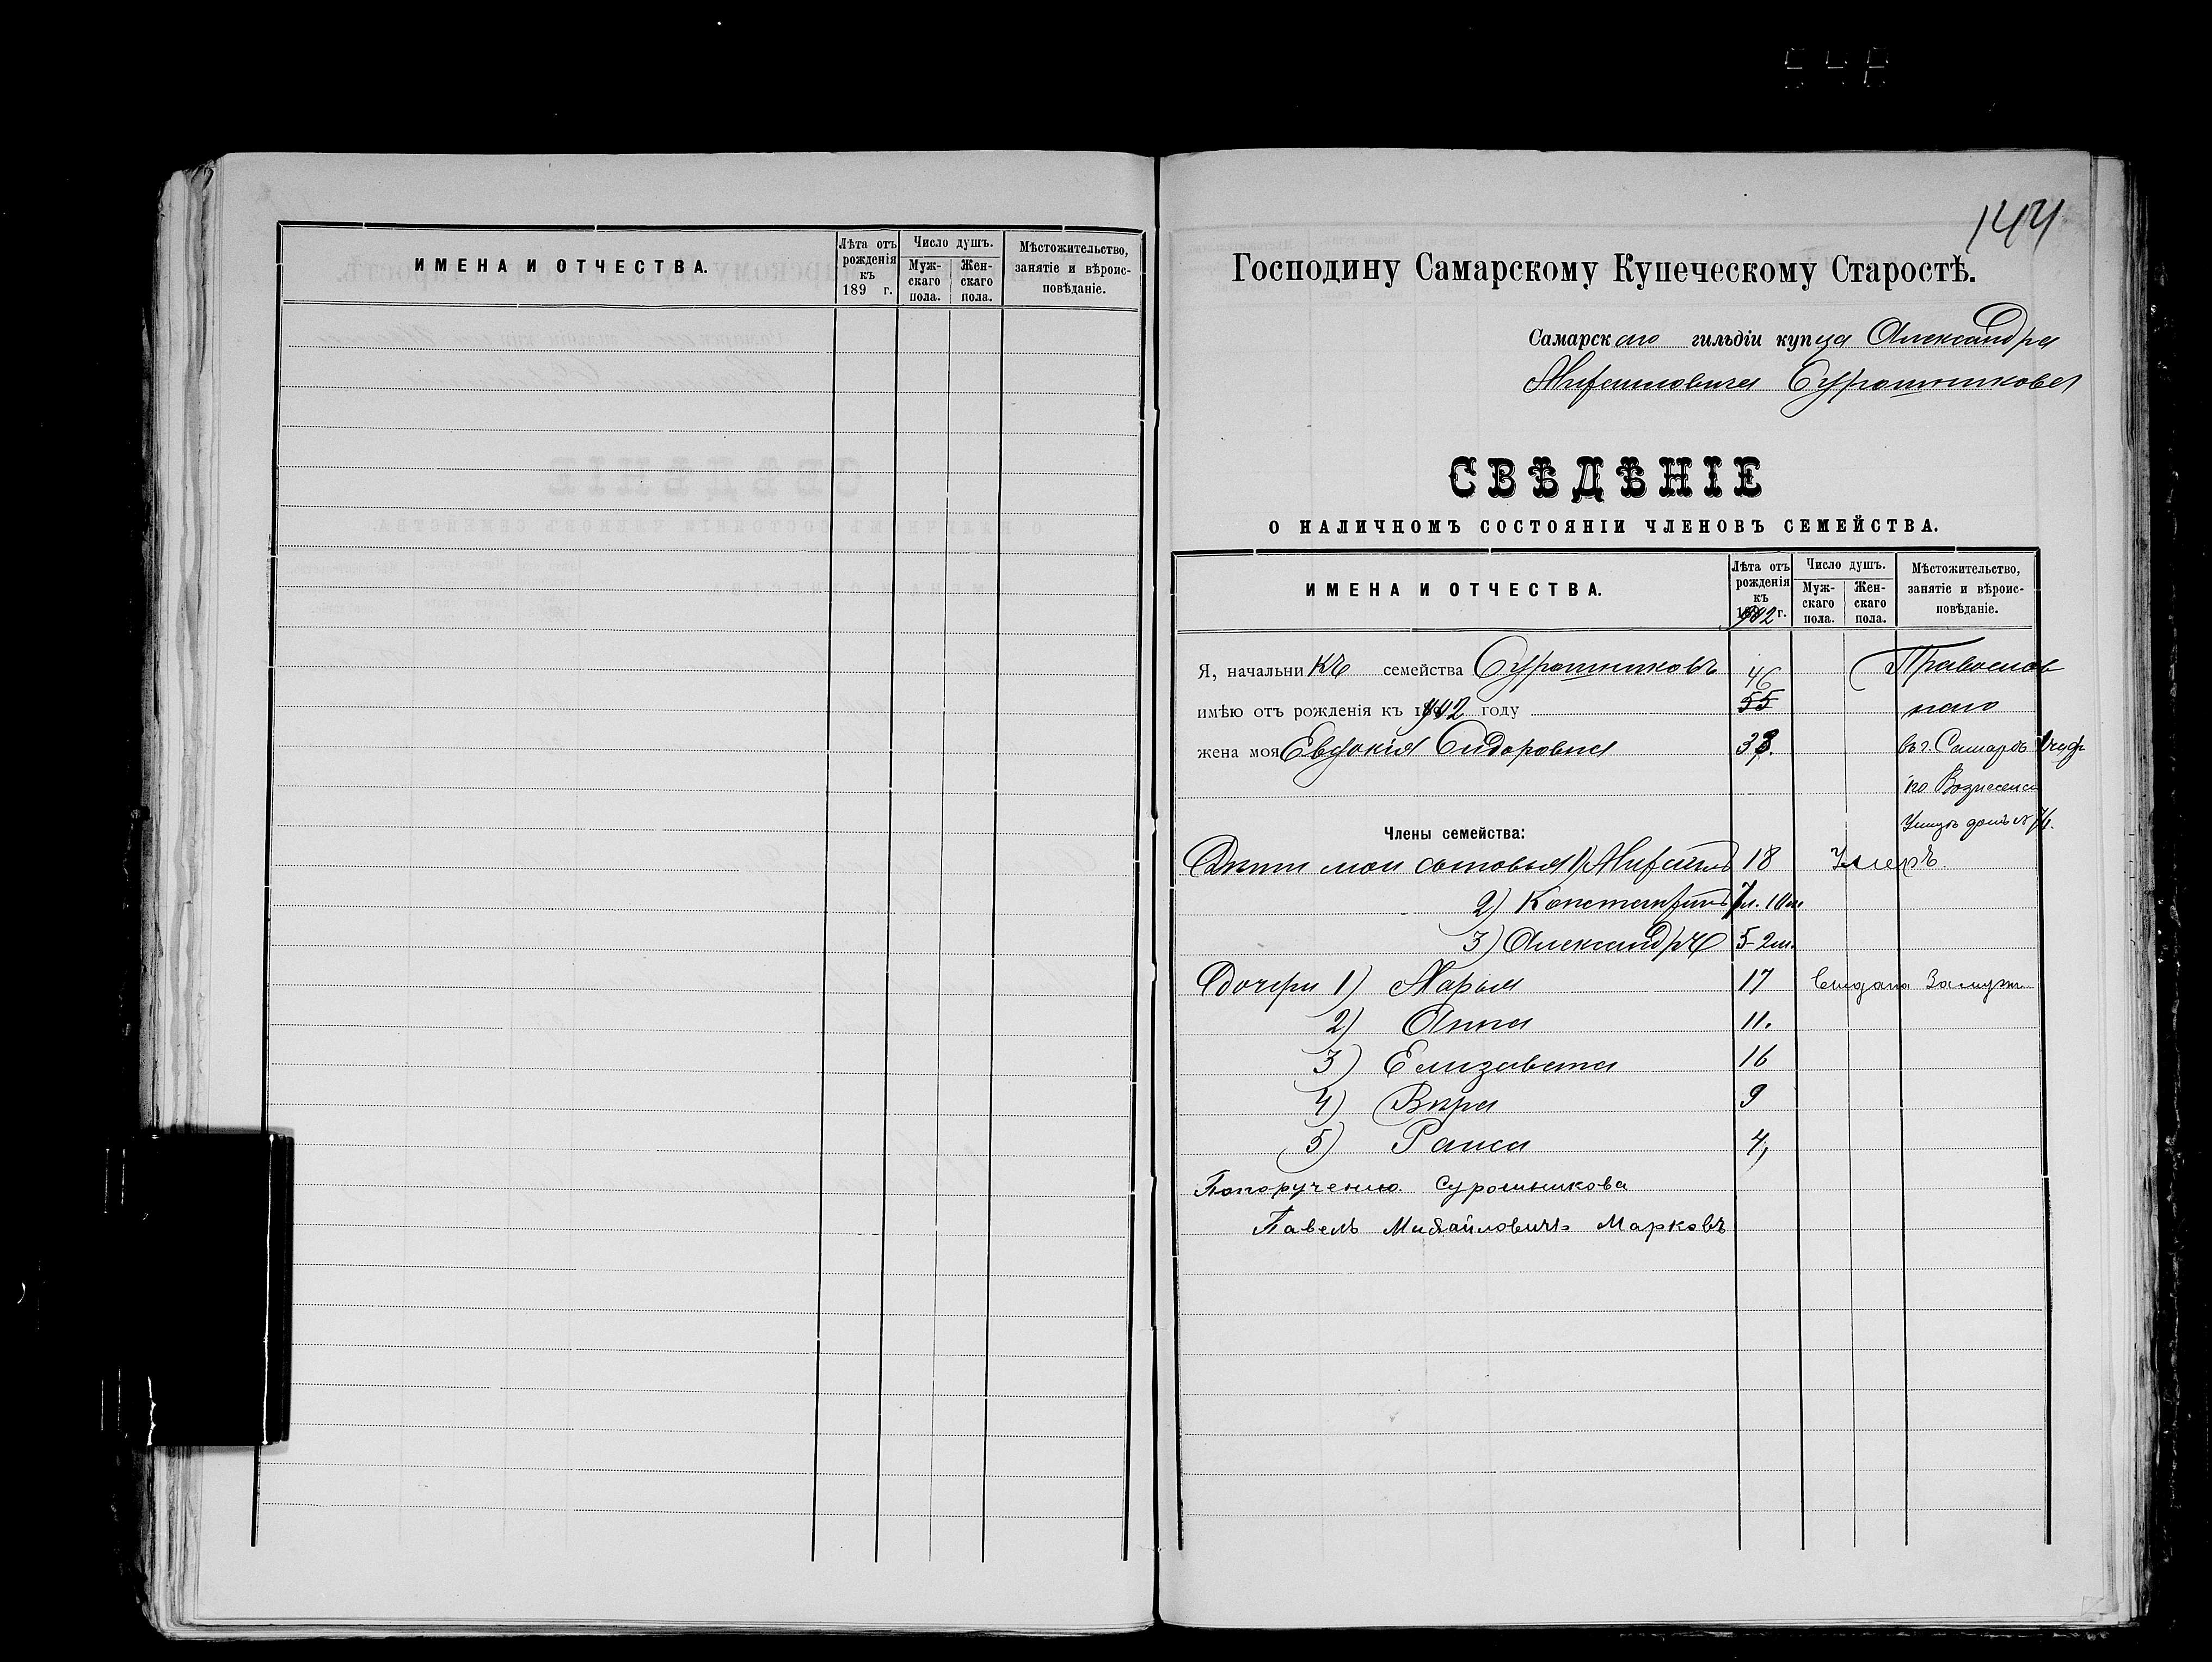 ИМЕНА И ОТЧЕСТВА.
Лѣта отъ рожденія къ 189 г.
Число душъ.
Муж-скаго пола.
Жен-скаго пола.
Мѣстожительство, занятіе и вѣроис-повѣданіе.
144
Господину Самарскому Купеческому Старостѣ.
Самарскаго гильдіи купца Александра
Сурошникова
СВѢДѢНІЕ
О НАЛИЧНОМЪ СОСТОЯНІИ ЧЛЕНОВЪ СЕМЕЙСТВА.
ИМЕНА И ОТЧЕСТВА.
Лѣта отъ рожденія къ 1902 г.
Число душъ.
Муж-скаго пола.
Жен-скаго пола.
Мѣстожительство, занятіе и вѣроис-повѣданіе.
Я, начальникъ семейства Сурошниковъ 46 Православ
имѣю отъ рожденія къ 1902 году 55 наго
жена моя Евдокія Сидоровна 33. въ г. Самарѣ
по Вознесенс
Члены семейства: Улицѣ домъ №
Дѣти мои сыновья 1) 18 Умеръ.
2) Константинъ 7 л. 10 м.
3) Александръ 5-2 м.
Дочери 1) Марья 17 Выдана Замужъ
2) Анна 11.
3) Елизавета 16
4) Вѣра 9
5) Раиса 4,
Попоручению Сурошникова
Павелъ Михайловичъ Марковъ